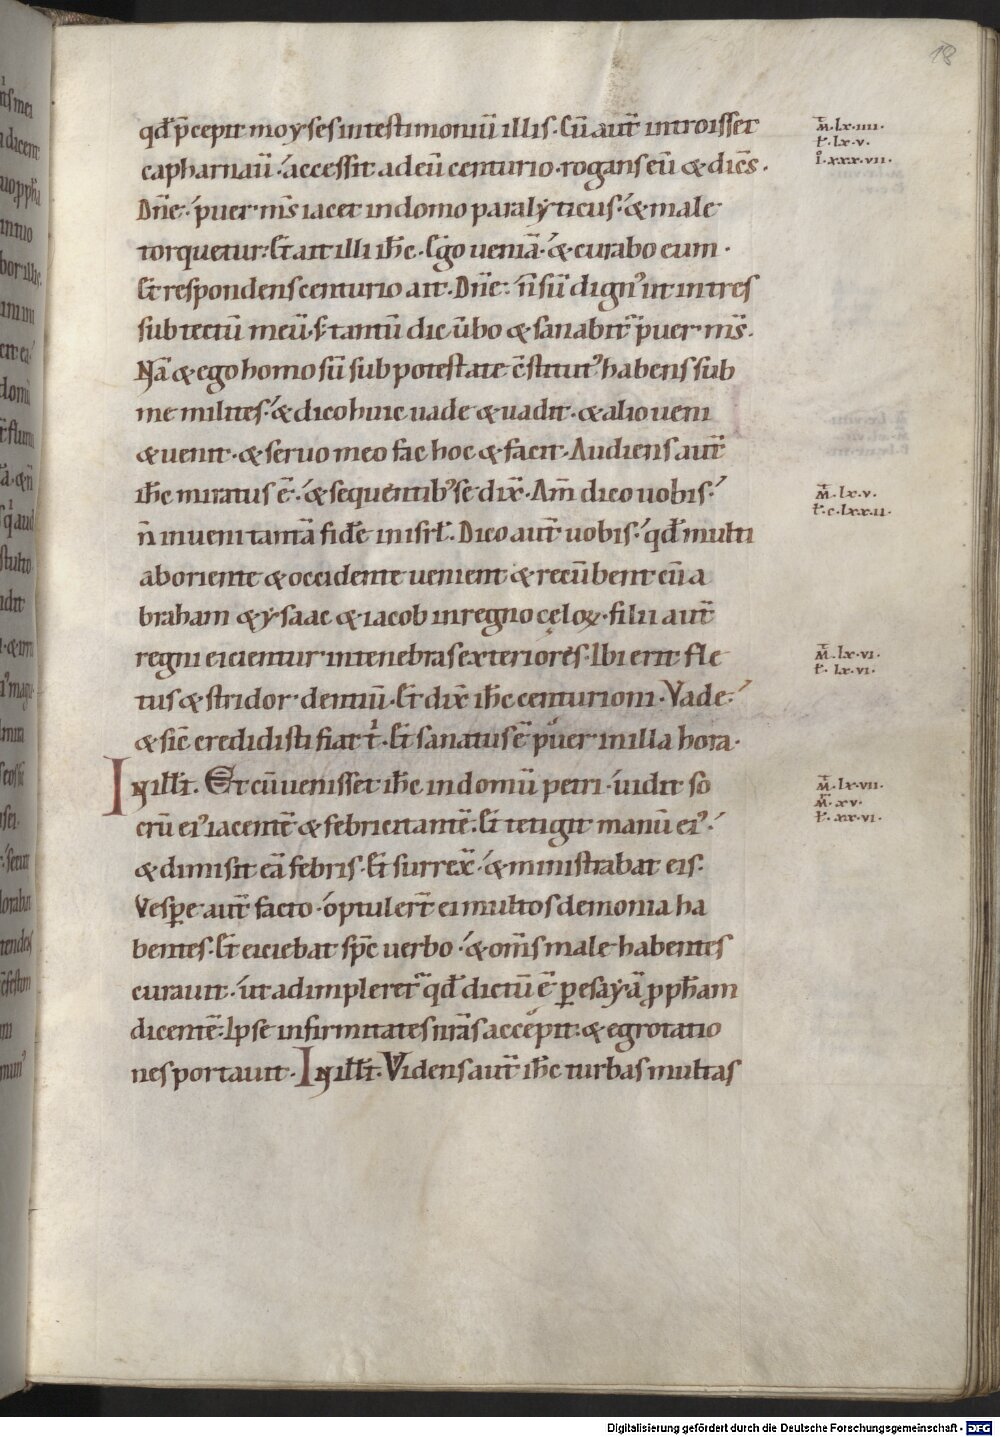 18
qđ p̄cepit moyses in testimoniū illis. Cū aut̄ introisset
capharnaū. accessit ad eū centurio. rogans eū & dicēs.
Dn̄e. puer m̄s iacet in domo paralyticus. & male
torquetur. Et ait illi ih̄c. Ego ueniā. & curabo eum.
Et respondens centurio ait. Dn̄e. n̄ sū dign' ut intres
sub tectū meū. s; tantū dic ūbo & sanabit̄ puer m̄s.
Nā & ego homo sū sub potestate c̄stitut' habens sub
me milites. & dico huic uade & uadit. & alio ueni
& uenit. & seruo meo fac hoc & facit. Audiens aut̄
ih̄c miratus ē. & sequentib' se dix̄. Am̄ dico uobis.
n̄ inueni tantā fidē in isrł. Dico aut̄ uobis. qđ multi
ab oriente & occidente uenient & recūbent cū a
braham & ysaac & iacob in regno cęloꝝ. filii aut̄
regni eicientur in tenebras exteriores. Ibi erit fle
tus & stridor dentiū. Et dix̄ ih̄c centurioni. Vade.
& sic̄ credidisti fiat t̓. Et sanatus ē puer in illa hora.
In iłł t̄. Et cū uenisset ih̄c in domū petri. uidit so
crū ei' iacentē & febricitantē. Et tetigit manū ei'.
& dimisit eā febris. Et surrex̄. & ministrabat eis.
Vesꝑe aut̄ facto. optuler̄t ei multos demonia ha
bentes. Et eiciebat sp̄c uerbo. & om̄s male habentes
curauit. ut adimpleret̄ qđ dictū ē ꝑ esayā ꝓph̄am
dicentē. Ipse infirmitates nr̄as accepit. & egrotatio
nes portauit. In iłł t̄. Videns aut̄ ih̄c turbas multas
m̄. lx. iiii.
ł. lx. v.
i. xxx. vii.
m̄. lx. v.
ł. c. lxx. ii.
m̄. lx. vi.
ł. lx. vi.
m̄. lx. vii.
m̄. xv.
ł. xx. vi.
Digitalisierung gefördert durch die Deutsche Forschungsgemeinschaft - DFG